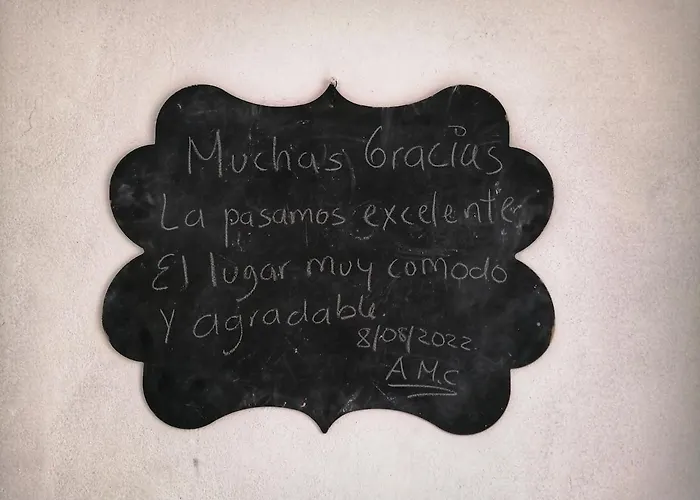 Muchas Gracias
La pasamos excelente
El lugar muy comodo
y agradable.
8/08/2022.
A M.C